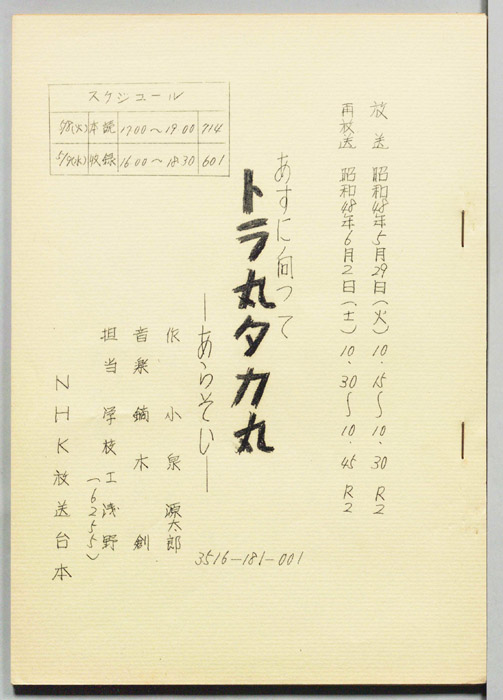 放送 昭和48年5月29日(火) 10.15〜10.30 R2
再放送 昭和48年6月2日(土) 10.30〜10.45 R2
スケジュール
5/8(火) 本読 17.00〜19.00 714
5/9(水) 収録 16.00〜18.30 601
あすに向って
トラ丸タカ丸
―あらそい―
作 小泉源太郎
音楽 鏑木創
担当 学校工 浅野
(6255)
NHK放送台本
3516-181-001